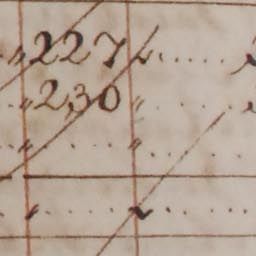 "227"
"230"
" "
" "